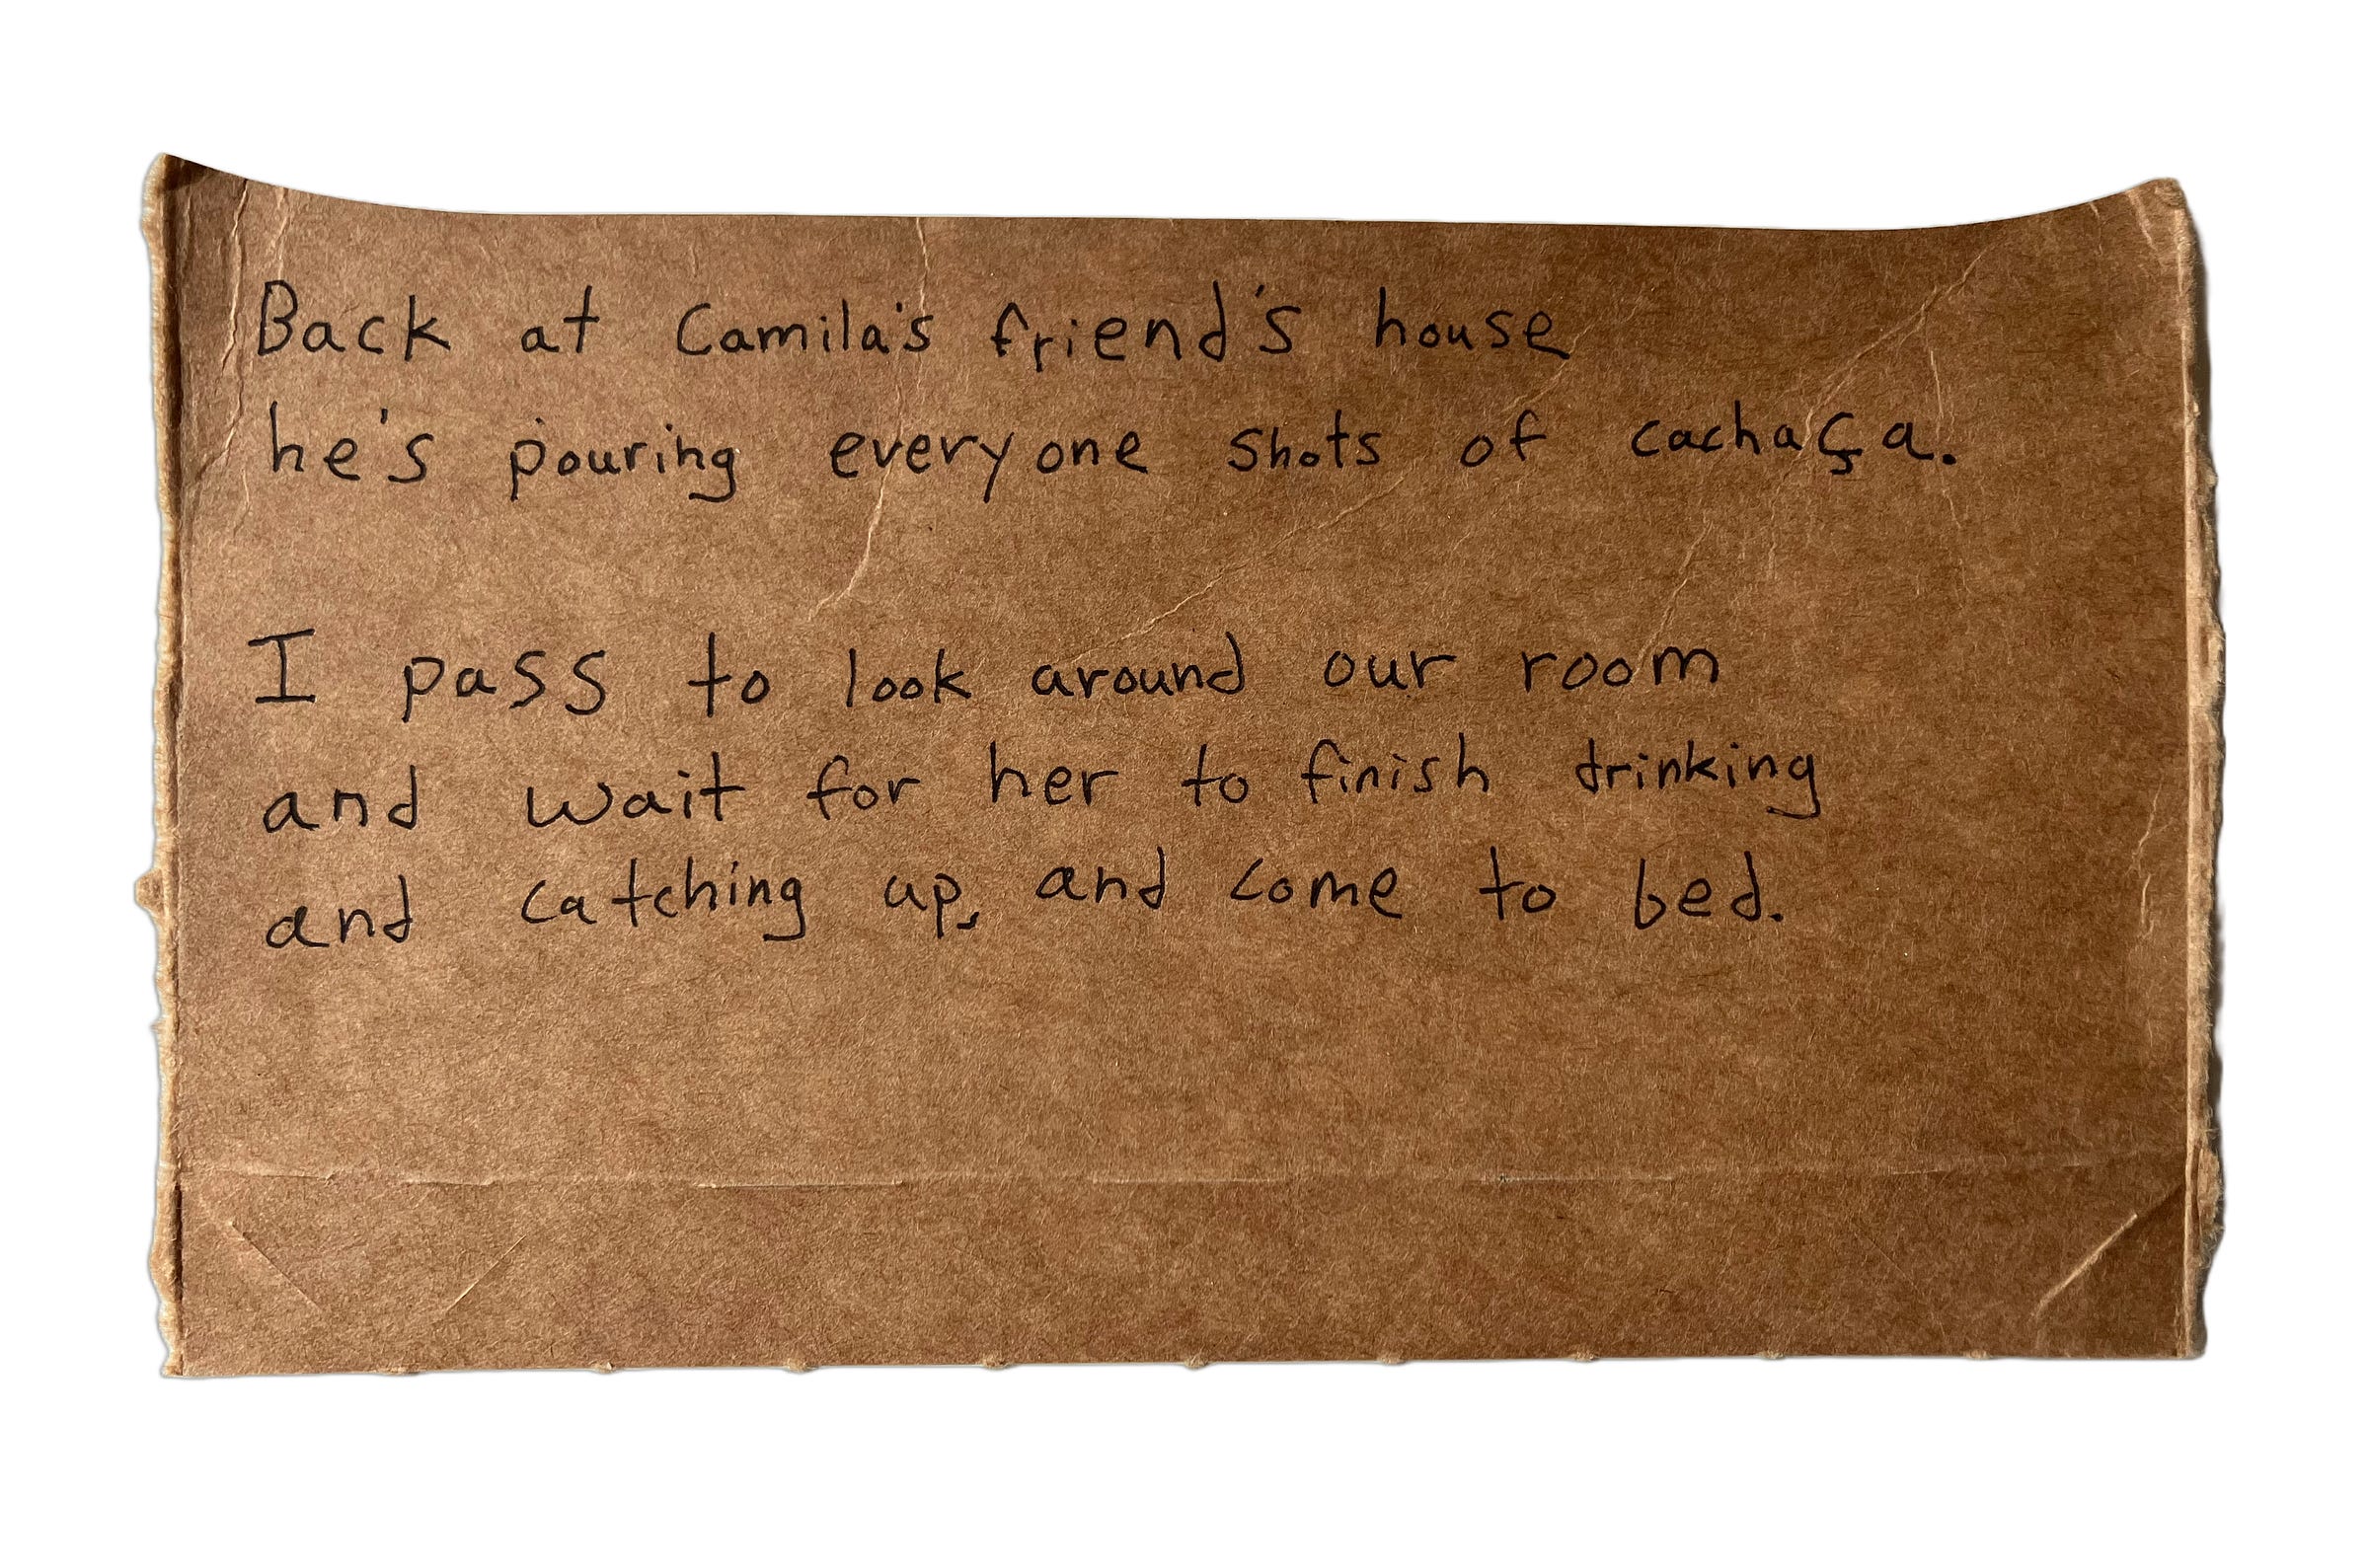 Back at Camila's friend's house
he's pouring everyone shots of cachaça.
I pass to look around our room
and wait for her to finish drinking
and catching up, and come to bed.